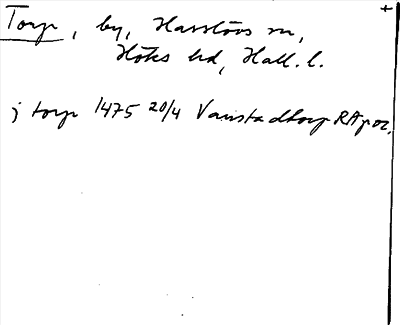 Torp, by, Hasslövs sn,
Höks hd, Hall. l.
j torp 1475 20/4 Vanstadtorp RAp or.